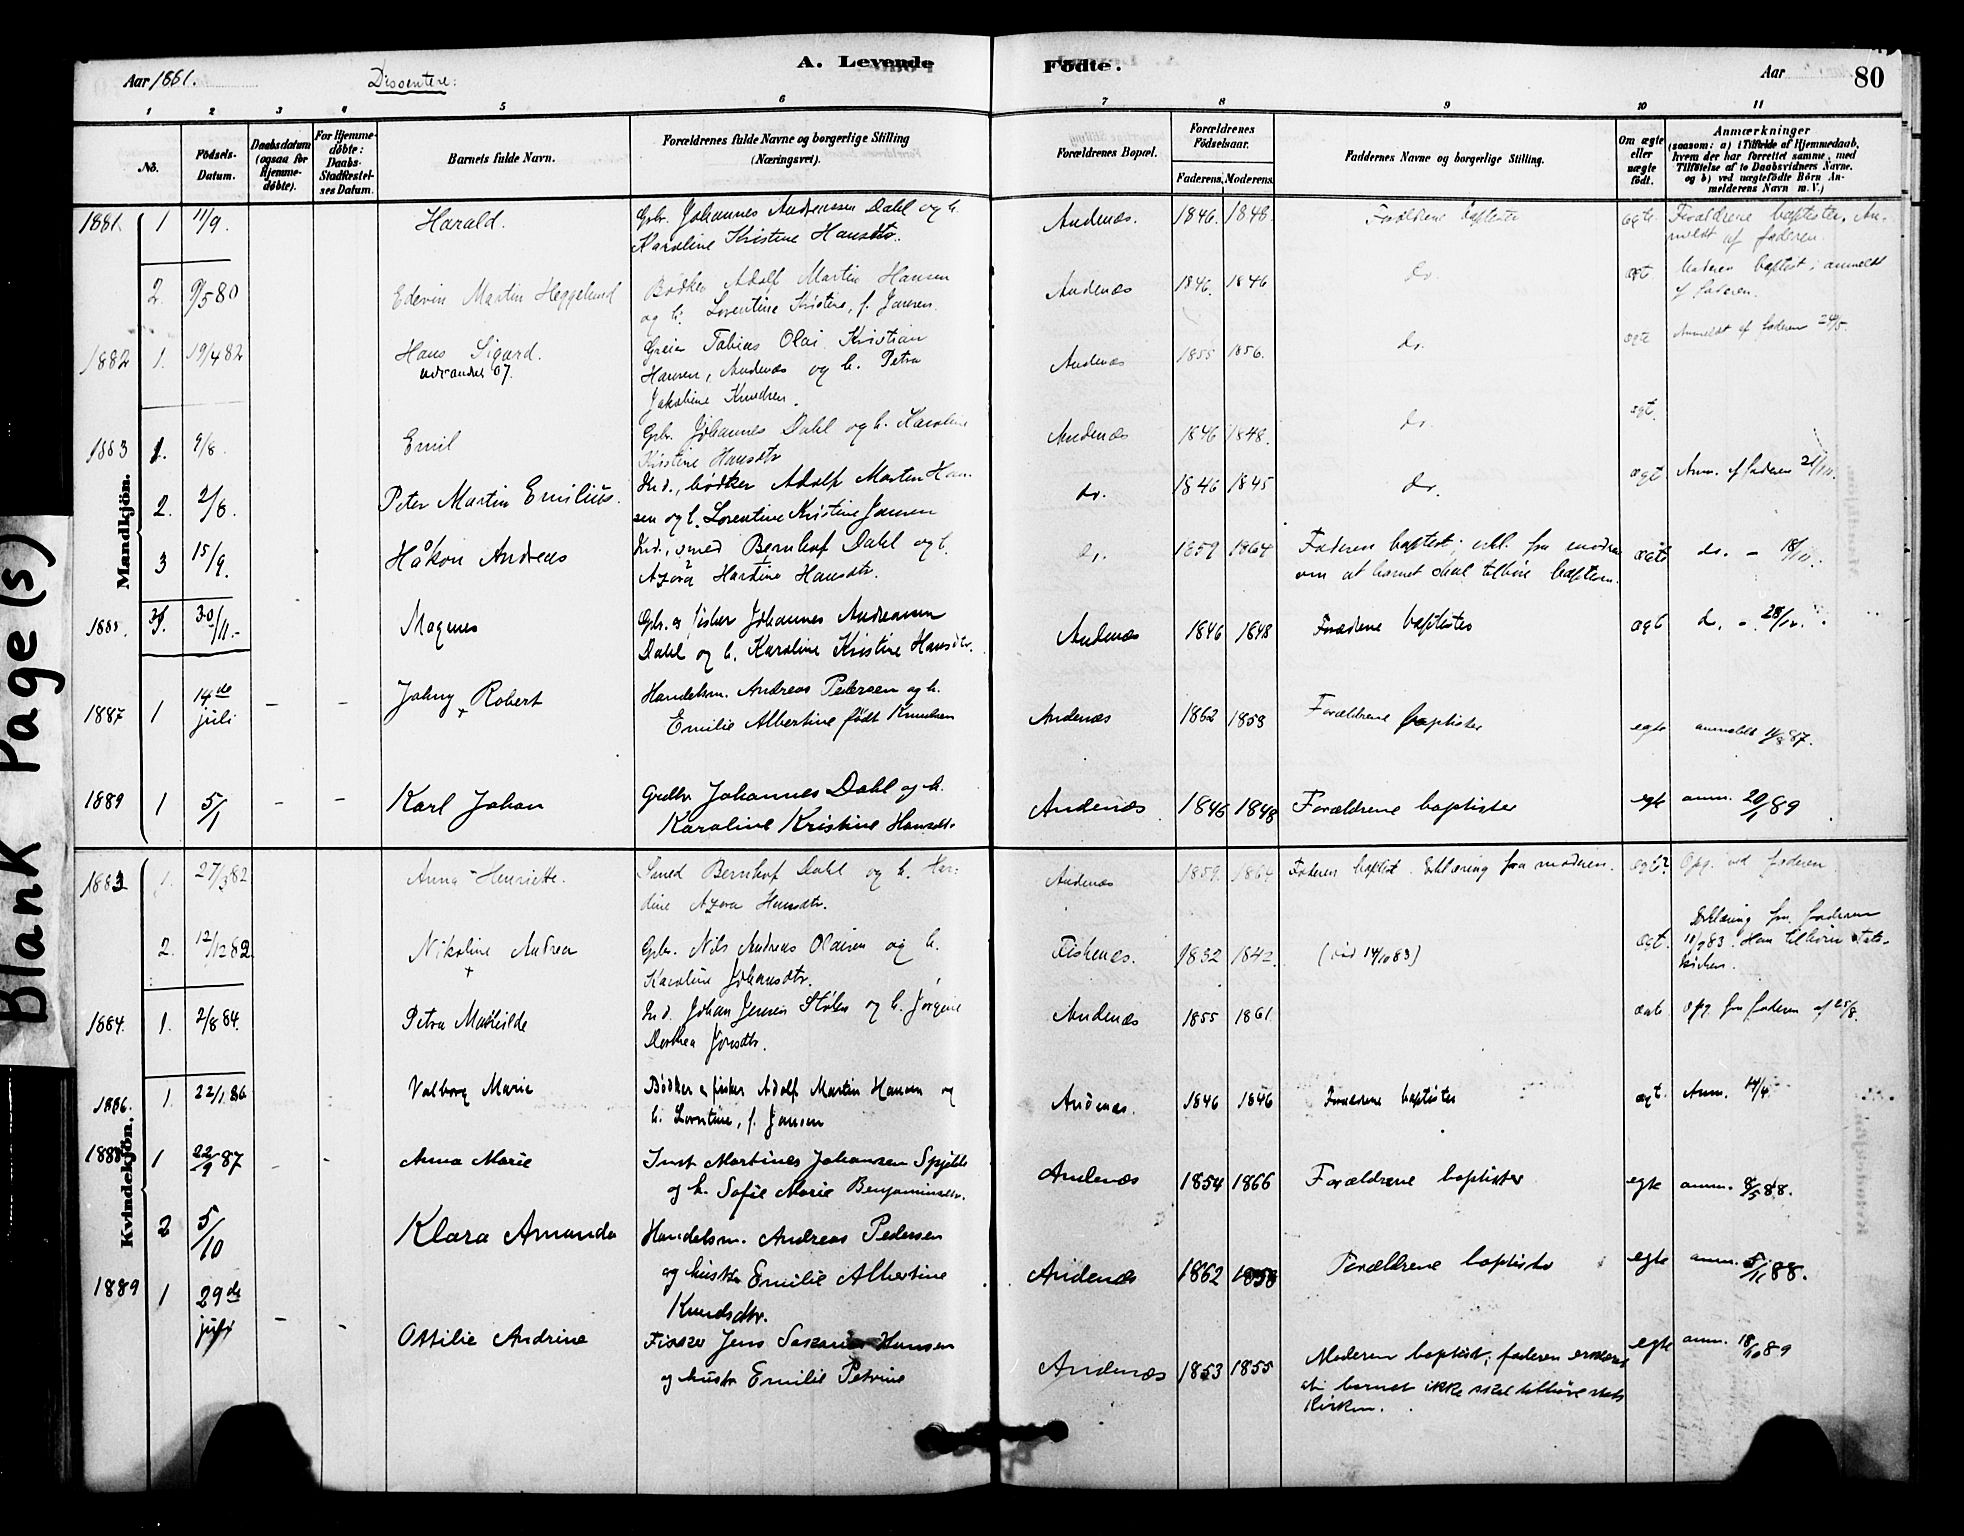 Blank Page(s)
Aar 1881.
Dissentere:
A. Levende Fødte.
Aar
80
1 2 3 4 5 6 7 8 9 10 11
No.
Födsels-Datum.
Daabsdatum (ogsaa for Hjemmedøbte).
For Hjemmedøbte: Daabs-Stadfæstelses Datum.
Barnets fulde Navn.
Forældrenes fulde Navne og borgerlige Stilling (Næringsvei).
Forældrenes Bopæl.
Forældrenes Födselsaar.
Faderens. Moderens.
Faddernes Navne og borgerlige Stilling.
Om ægte eller uægte födt.
Anmærkninger (saasom: a) i Tilfælde af Hjemmedaab, hvem der har forrettet samme, med Tilföielse af to Daabsvidners Navne, og b) ved uægtefödte Börn Anmelderens Navn m. V.)
Mandkjön.
1881. 1 11/9. Harald. Gbr. Johannes Andreassen Dahl og h. Andenæs. 1846. 1848. Forældrene baptister ægte. Forældrene baptister. An-
Karoline Kristine Hansdtr. meldt af faderen.
2. 9/5 80 Edevin Martin Heggelund Bødker Adolf Martin Hansen Andenæs 1846. 1846 do. ægt Moderen baptist; anmeldt
og h. Lorentine Kristine, f. Jansen. af faderen.
1882 1. 19/4 82 Hans Sigurd. Tobias Olai Kristian Andenæs 1855 1856. do. ægte Anmeldt af faderen 24/5.
udvandret 07. Hansen, Andenæs og h. Petra
Jakobine Knudsen.
1883 1. 9/8. Emil Gbr. Johannes Dahl og h. Karoline Andenæs 1846 1848. do. ægt.
Kristine Hansdtr
2. 2/8. Peter Martin Emilius. Ind., bødker Adolf Martin Han- do. 1846 1845 do. ægt Anm. af faderen
sen og h. Lorentine Kristine Jansen
3 15/9. Håkon Andreas Ind., smed Bernhof Dahl og h. do. 1859 1864 Faderen baptist; erkl. fra modren ægte do. -
Azora Hardine Hansdtr. om at barnet skal tilhøre baptism.
1885. 30/11.- Magnus Gbr. og fisker Johannes Andreassen Andenæs 1846 1848 Forældrene baptister ægt d. - 28/12.
Dahl og h. Karoline Kristine Hansdtr.
1887 1 14de juli - - Johny Robert Handelsm. Andreas Pedersen og h. Andenæs 1862 1858 Forældrene baptister egte anmeldt 11/8 87.
+ Emilie Albertine født Knudsen
1889 1 5/1 - - Karl Johan Grdbr Johannes Dahl og h. Andenæs 1846 1848 Forældrene baptister egte anm. 20/1 89
Karoline Kristine Hansdtr.
Kvindekjön.
1883 1. 27/3 82 Anna Henriette. Smed Bernhof Dahl og h. Har- Andenæs 1859. 1864 Faderen baptist. Erklæring fra moderen. ægte? Opg. ved faderen
dine Azora Hansdtr.
2. 12/12 82. Nikoline Andrea Gbr. Nils Andreas Olaisen og h. Fiskenes. 1832 1842. ægt. Erklæring fra faderen
+ Karoline Johansdtr. Han tilhører Stats-
kirken.
1884. 1. 2/8 84. Petra Mathilde Ind. Johan Jensen og h. Jørgine Andenæs 1855 1861 ægte opg. fra faderen af 25/8.
Dorthea
1886. 1. 22/1 86 Valborg Marie Bødker & fisker Adolf Martin Hansen og Andenæs. 1846 1846 Forældrene baptister ægt. Anm. 14/4
h. Lorentine, f. Jansen
1888 1 22/9 87 - - Anna Marie Inst Martines Johansen Andenæs 1854 1866 Forældrene baptister egte anm. 8/5 88.
og h. Sofie Marie Benjaminsdtr.
2 5/10 Klara Amanda Handelsm. Andreas Pedersen Andenæs 1862 1858 Forældrene baptister egte anm. 5/11 88.
og hustr Emilie Albertine
Knudsdtr.
1889 1 29de juli - - Ottilie Andrine Fisker Jens Hansen Andenæs 1853 1855 Moderen baptist; faderen egte anm. 18/10 89
og hustr Emilie Petrine at barnet ikke skal tilhøre stats
kirken.